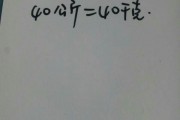 40公斤=40千克.